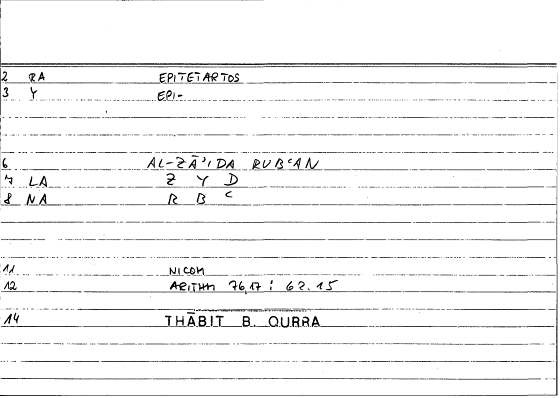 2 RA EPITETARTOS
3 Y EPI-
6 AL-ZĀʾIDA RUBʿAN
7 LA Z Y D
8 NA R B ʿ
11 NICOM
12 ARITHM 76,17 : 62.15
14 THĀBIT B. QURRA